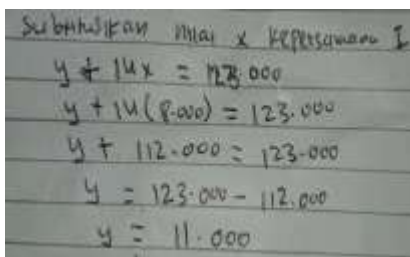 Substitusikan nilai x kepersamaan I
y + 14x = 123.000
y + 14(8.000) = 123.000
y + 112.000 = 123.000
y = 123.000 - 112.000
y = 11.000